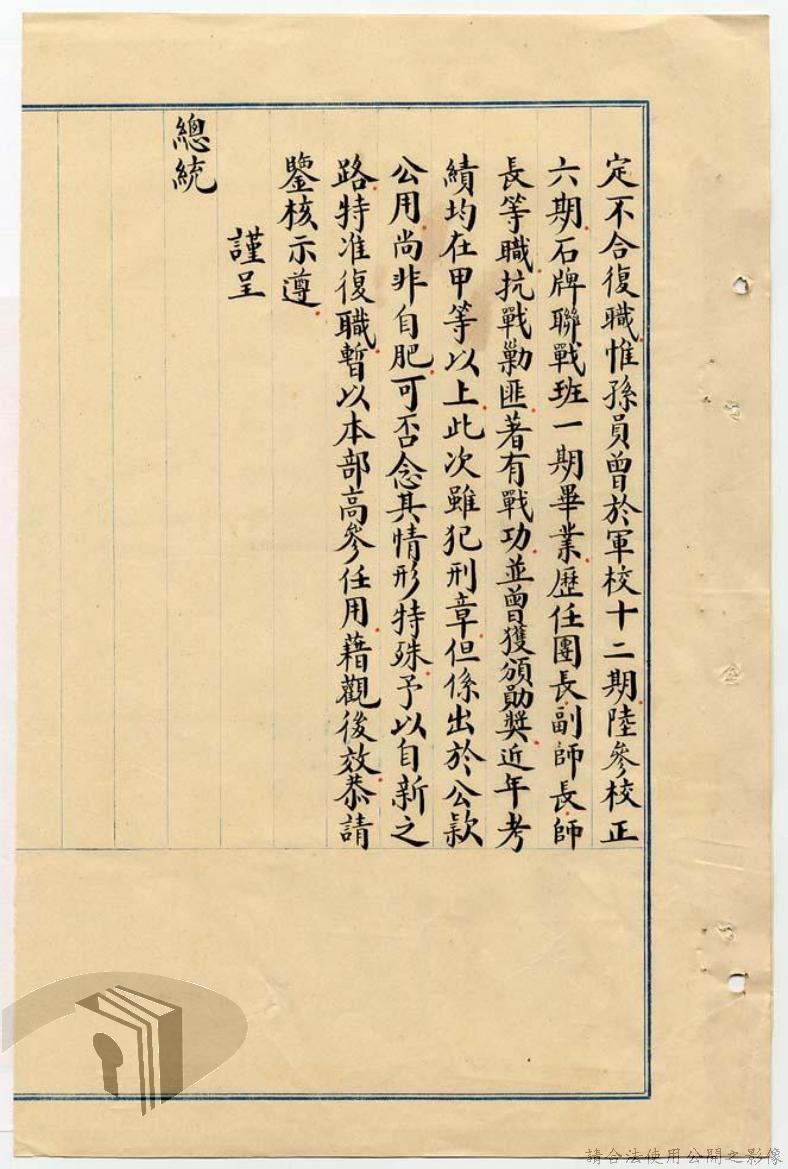 定不合復職惟孫員曾於軍校十二期陸參校正
六期石牌聯戰班一期畢業歷任團長副師長師
長等職抗戰勦匪著有戰功並曾獲頒勛獎近年考
績均在甲等以上此次雖犯刑章但係出於公款
公用尚非自肥可否念其情形特殊予以自新之
路特准復職暫以本部高參任用藉觀後效恭請
鑒核示遵
謹呈
總統
請合法使用公開之影像